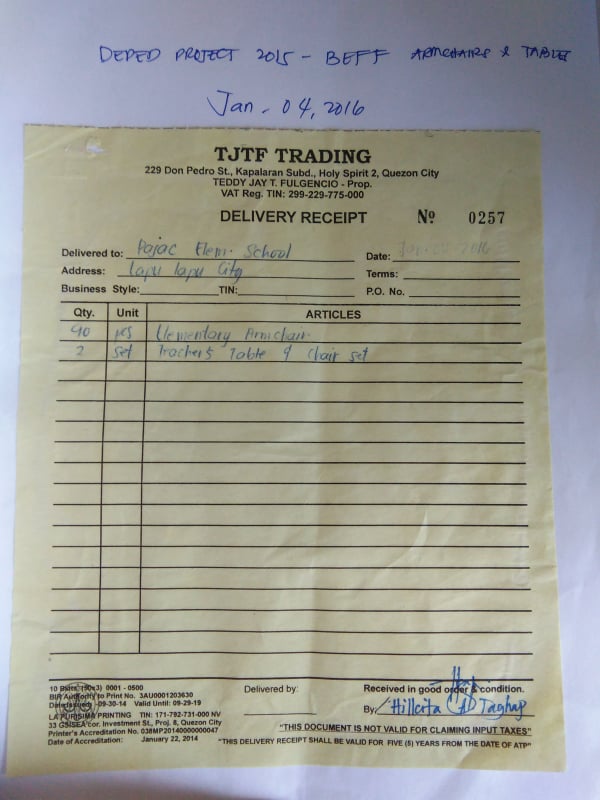 DEPED PROJECT 2015 - BEFF ARMCHAIRS & TABLET
Jan. 04, 2016
TJTF TRADING
229 Don Pedro St., Kapalaran Subd., Holy Spirit 2, Quezon City
TEDDY JAY T. FULGENCIO - Prop.
VAT Reg. TIN: 299-229-775-000
DELIVERY RECEIPT Nº 0257
Delivered to: Pajac Elem. School Date: Jan. 04 2016
Address: Lapu lapu City Terms:
Business Style: TIN: P.O. No.
Qty. Unit ARTICLES
40 pcs Elementary Armchair
2 set Teacher's Table & Chair set
10 Bklts. (50x3) 0001 - 0500
BIR Authority to Print No. 3AU0001203630
Date Issued: 09-30-14 Valid Until: 09-29-19
LA PURISIMA PRINTING TIN: 171-792-731-000 NV
33 GSISEA cor. Investment St., Proj. 8, Quezon City
Printer's Accreditation No. 038MP20140000000047
Date of Accreditation: January 22, 2014
Delivered by:
Received in good order & condition.
By: Hillcita Taghap
"THIS DOCUMENT IS NOT VALID FOR CLAIMING INPUT TAXES"
"THIS DELIVERY RECEIPT SHALL BE VALID FOR FIVE (5) YEARS FROM THE DATE OF ATP"